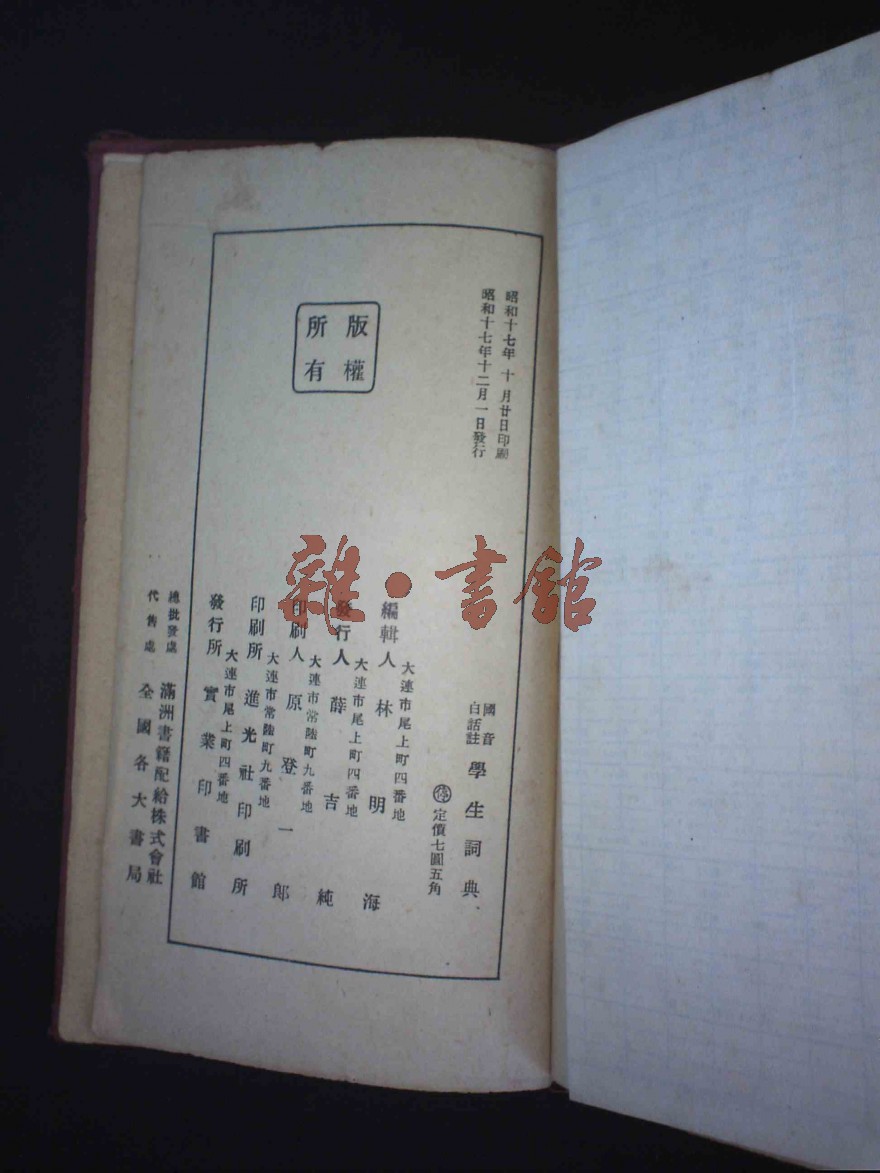 昭和十七年 十 月廿日印刷
昭和十七年十二月一日發行
版權
所有
國音
白話註
學生詞典
停 定價七圓五角
大連市尾上町四番地
編輯人 林明海
大連市尾上町四番地
發行人 薛吉純
大連市常陸町九番地
印刷人 原登一郎
大連市常陸町九番地
印刷所 進光社印刷所
大連市尾上町四番地
發行所 實業印書館
總批發處 滿洲書籍配給株式會社
代售處 全國各大書局
雜·書館